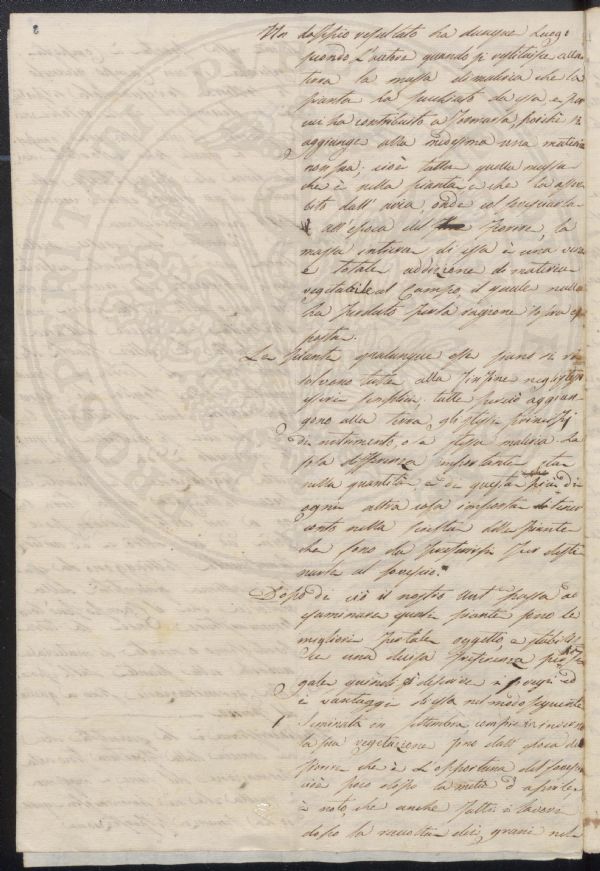 Un doppio resultato ha dunque luogo
secondo l'autore quando si restituisce alla
terra la massa di materia che la
pianta ha succhiato da essa e per
cui ha contribuito a formarla, poiché si
aggiunge alla medesima una materia
non sua, cioè tutta quella massa
che è nella pianta e che ha assor
bito dall'aria, onde col sovesciarla
all'epoca del fiorire, la
massa intiera di essa è una vera
e totale addizione di materia
vegetabile al Campo, il quale nulla
ha perduto per la ragione sopra es
posta.
Le Piante qualunque esse siano si ri
solvono tutte alla fin fine negli stessi
principi semplici tutte perciò aggiun
gono alla terra gli stessi principj
di nutrimento o la stessa materia. La
sola differenza importante sta
nella quantità e di questa più di
ogni altra cosa importa tener
conto nella scelta delle piante
che sono da preferirsi per desti
narle al sovescio.
Dopo di ciò il nostro aut passa ad
esaminare quali piante sono le
migliori per tale oggetto, e stabilis
ce una decisa preferenza per
quindi a descrivere i pregi ed
i vantaggi di essa nel modo seguente
Seminata in settembre compie in inverno
la sua vegetazione sino all'epoca del
fiorire che è l'opportuna del sovescio
cioè poco dopo la metà d'aprile
è noto, che anche fatti i lavori
dopo la raccolta dei grani nel